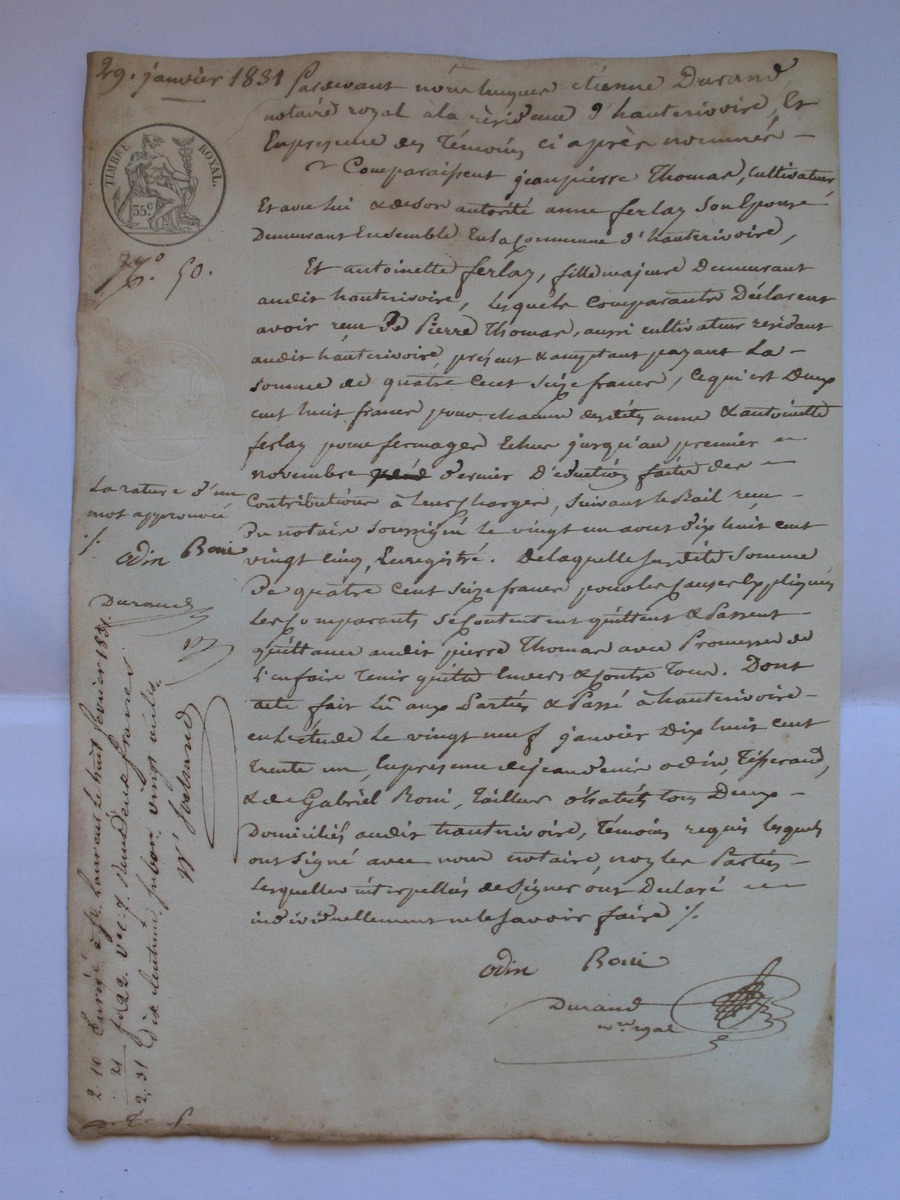 29. janvier 1831
Pardevant nous Jacques étienne Durand
notaire royal à la résidence d'hauterivoire, Et
En présence des Témoins ci après nommés –
Comparaissent jeanpierre Thomas, Cultivateur
Et avec lui & de son autorité anne ferlay Son Epouse
Demeurant Ensemble En la Commune d'hauterivoire,
Et antoinette ferlay, fille majeure Demeurant
audit hauterivoire, lesquels Comparants Déclarent
avoir reçu De Pierre Thomas, aussi cultivateur résidant
audit hauterivoire, présent & acceptant payant La –
Somme de quatre Cent Seize francs, Ce qui est Deux
cent huit francs pour chacune desdites anne & antoinette
ferlay pour fermages Echus jusqu'au premier
novembre dernier Déduction faite des
Contributions à leurs charges, Suivant le Bail reçu
Du notaire Soussigné le vingt un aout dix huit cent
vingt cinq, Enregistré. De laquelle Susdite Somme
De quatre Cent Seize francs pour les Causes Expliquées
Les Comparants Se Contentent quittent & Passent
quittance audit pierre Thomas avec Promesse de
L'en faire Tenir quitte Envers & Contre Tous. Dont
acte fait Lû aux Parties & Passé à hauterivoire
en L'étude Le vingt neuf janvier Dix huit cent
Trente un, En présence de jean denis odin, Tisserand,
& de Gabriel Boni, Tailleur d'habits, tous Deux
Domiciliés audit hauterivoire, Témoins requis lesquels
ont Signé avec nous notaire, non les Parties
Lesquelles interpellées de Signer ont Déclaré
individuellement ne le Savoir faire ./.
odin Boni
Durand
nre royal
TIMBRE ROYAL
35.c
No. 50.
La rature d'un
mot approuvée
./.
odin Boni
Durand
Enregé à St Laurent le huit février 1831.
fo 22. vo c. 7. Reçu Deux francs
& dix centimes, Subvon vingt un c.
2. 10
. 21
2. 31